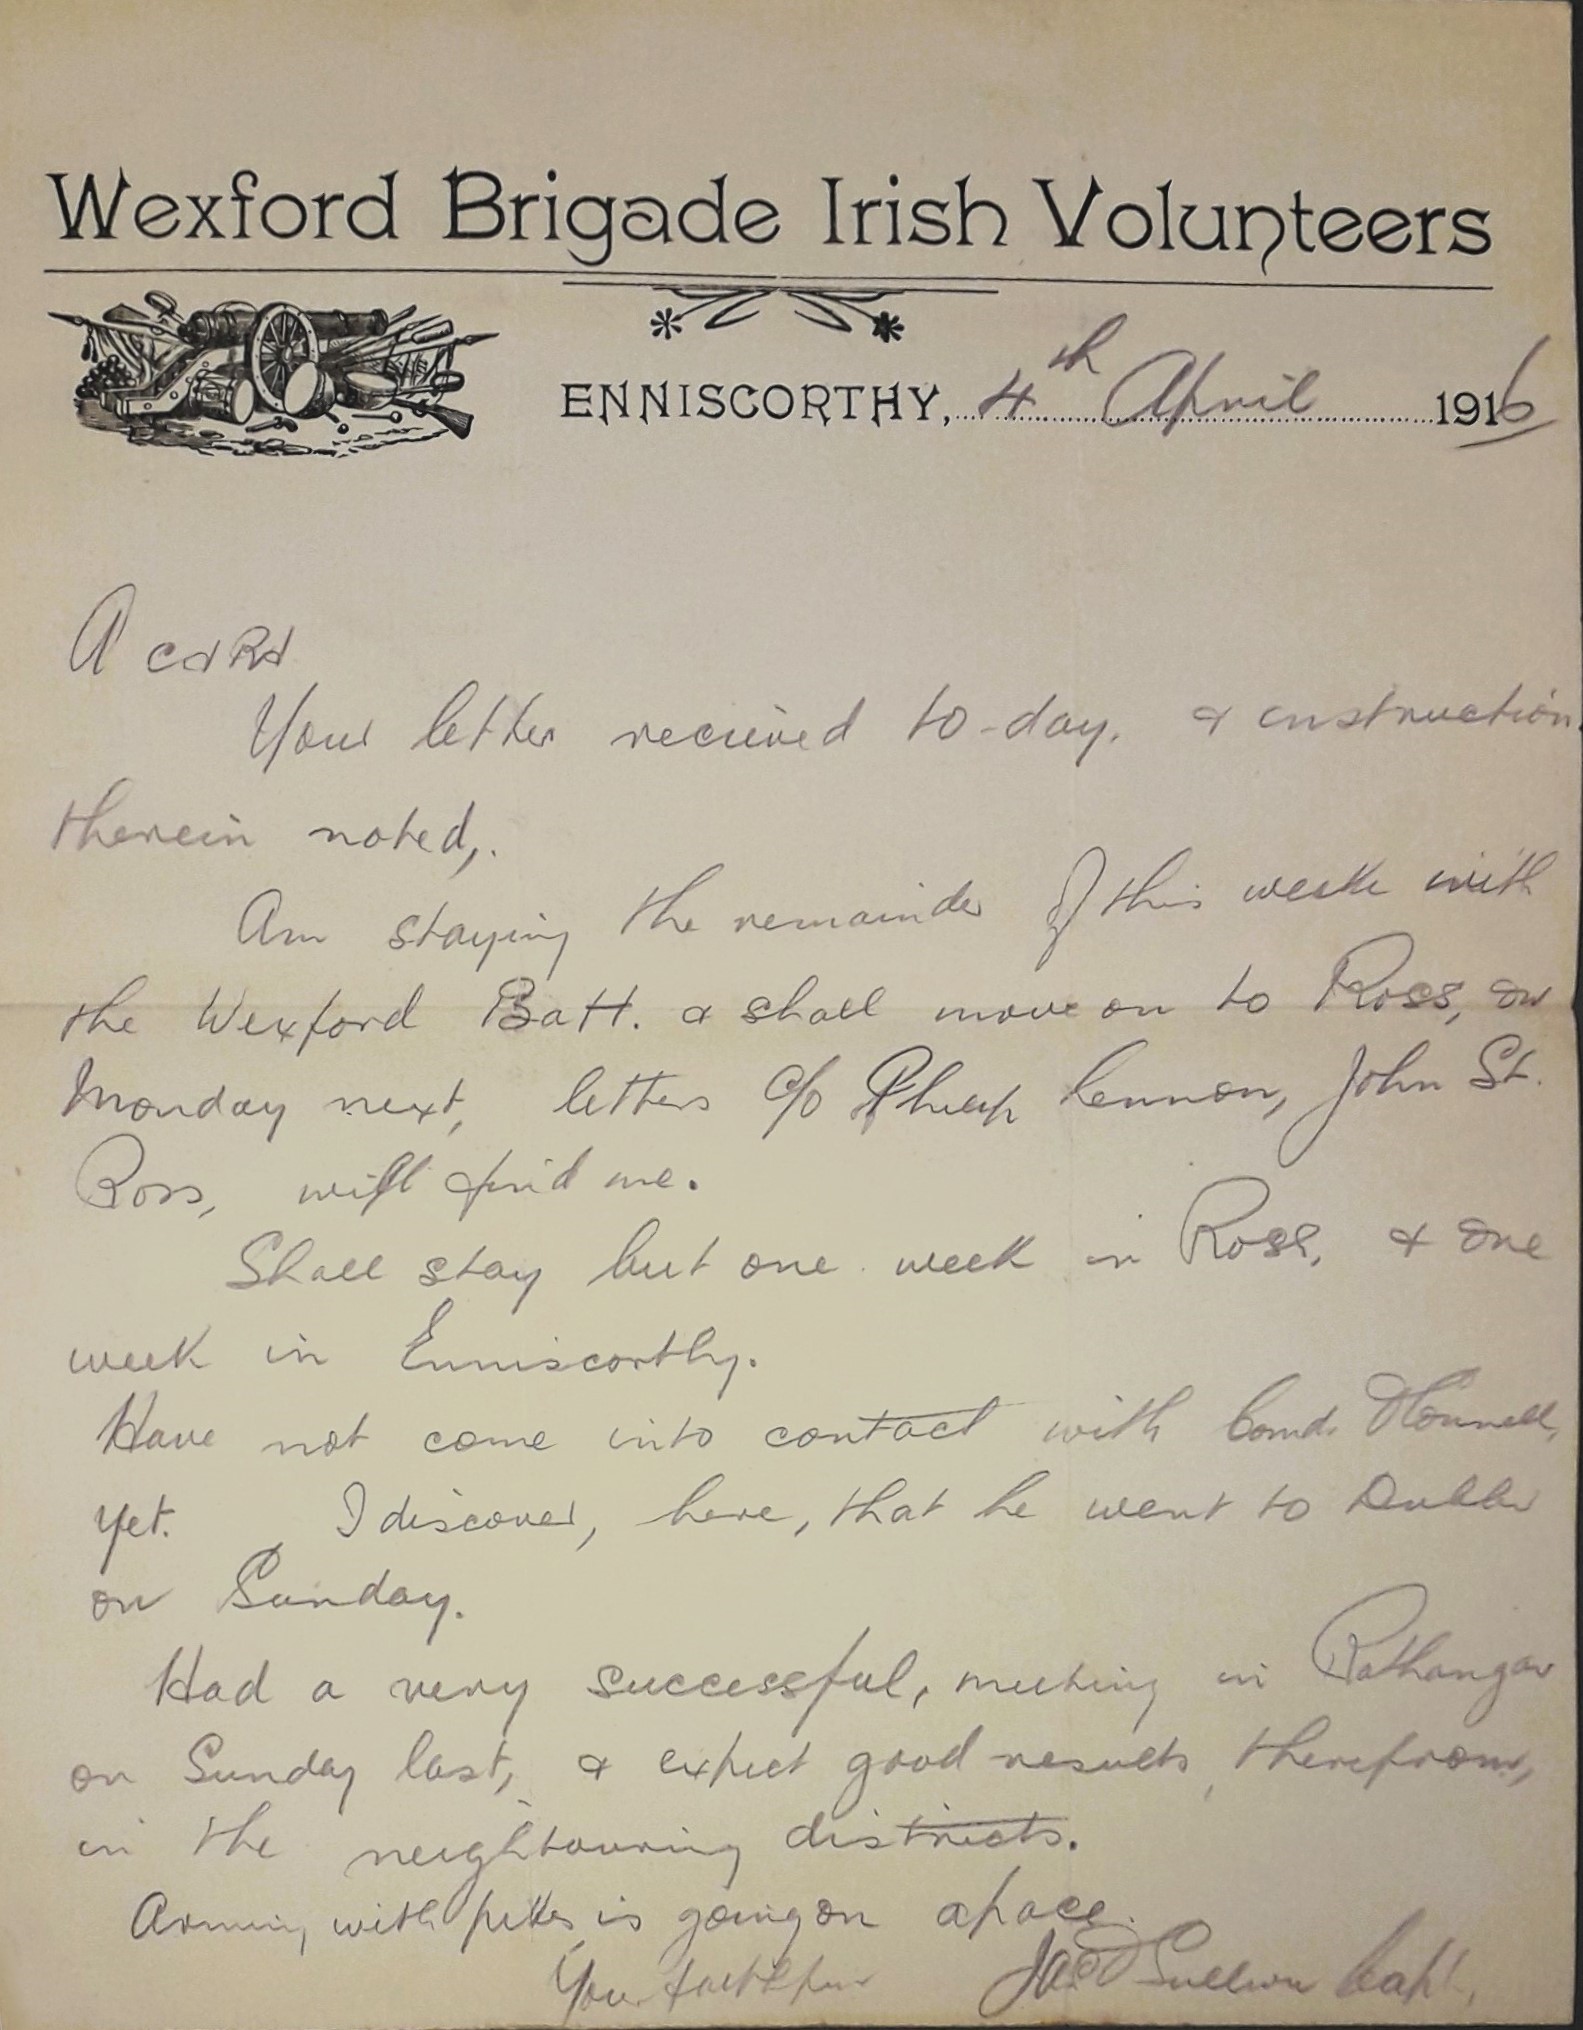 Wexford Brigade Irish Volunteers
ENNISCORTHY, 4th April 1916
A cara
Your letter recieved to-day, & instruction
therein noted,.
Am staying the remainder of this week with
the Wexford Batt. & shall move on to Ross, on
Monday next, letters c/o Philip Lennon, John St.
Ross, will find me.
Shall stay but one week in Ross, & one
week in Enniscorthy.
Have not come into contact with Comd. O'Connell,
yet. I discover, here, that he went to Dublin
on Sunday.
Had a very successful, meeting in Rathangan
on Sunday last, & expect good results, therefrom,
in the neighbouring districts.
Arming with pikes is going on apace.
Your faithful Jas O'Sullivan Capt.